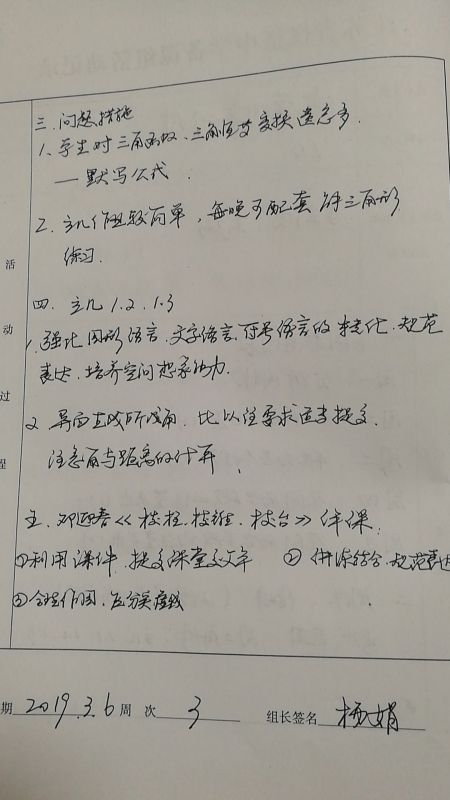 三、问题措施
1、学生对三角函数、三角恒等变换遗忘多.
—默写公式.
2、立几作业较简单,每晚可配套解三角形
练习.
四、立几1.2、1.3
1、强化图形语言、文字语言、符号语言的转化、规范
表达、培养空间想象能力.
2、异面直线所成角、比以往要求适当提交.
注意角与距离的计算.
五、邓迎春《棱柱、棱锥、棱台》评课.
①利用课件、提交课堂效率 ②结合、规范表达
③合理作图、区分实虚线.
活
动
过
程
期 2019.3.6 周 次 3 组长签名 杨娟